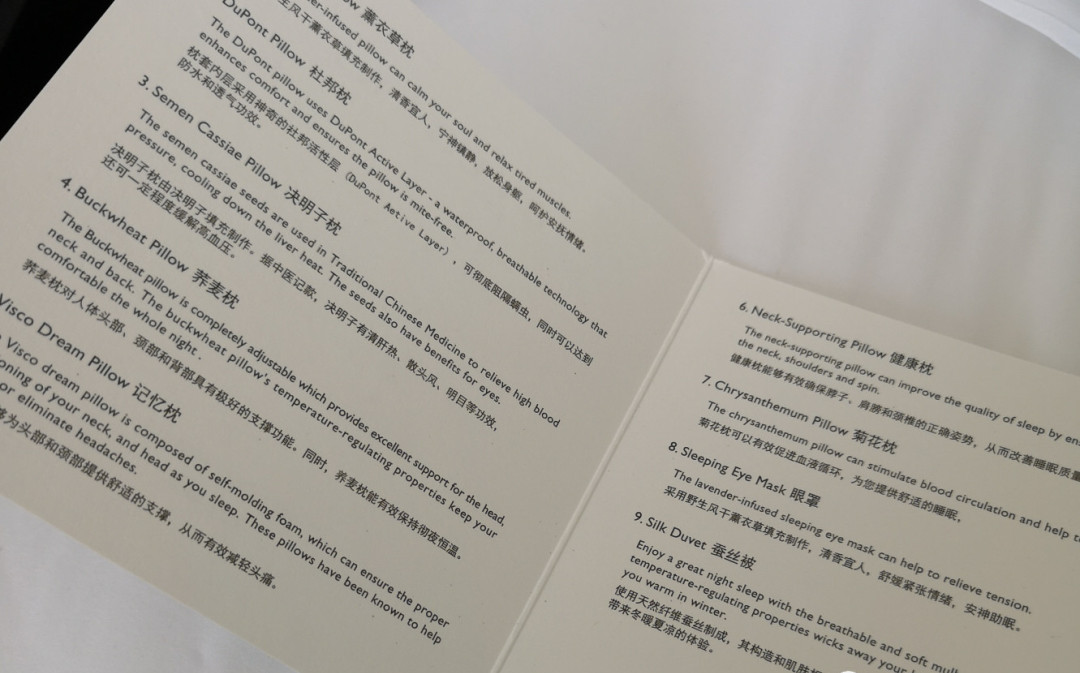 薰衣草枕
-infused pillow can calm your soul and relax tired muscles.
生风干薰衣草填充制作，清香宜人，宁神镇静，放松身躯，呵护安抚情绪。
DuPont Pillow 杜邦枕
The DuPont pillow uses DuPont Active Layer - a waterproof, breathable technology that
enhances comfort and ensures the pillow is mite-free.
枕套内层采用神奇的杜邦活性层（DuPont Aetive Layer），可彻底阻隔螨虫，同时可以达到
防水和透气功效。
3. Semen Cassiae Pillow 决明子枕
The semen cassiae seeds are used in Traditional Chinese Medicine to relieve high blood
pressure, cooling down the liver heat. The seeds also have benefits for eyes.
决明子枕由决明子填充制作。据中医记款，决明子有清肝热、散头风、明目等功效，
还可一定程度缓解高血压。
4. Buckwheat Pillow 荞麦枕
The Buckwheat pillow is completely adjustable which provides excellent support for the head,
neck and back. The buckwheat pillow's temperature-regulating properties keep your
comfortable the whole night .
荞麦枕对人体头部、颈部和背部具有极好的支撑功能。同时，荞麦枕能有效保持彻夜恒温。
Visco Dream Pillow 记忆枕
Visco dream pillow is composed of self-molding foam, which can ensure the proper
ioning of your neck, and head as you sleep. These pillows have been known to help
or eliminate headaches.
为头部和颈部提供舒适的支撑，从而有效减轻头痛。
6. Neck-Supporting Pillow 健康枕
The neck-supporting pillow can improve the quality of sleep by
the neck, shoulders and spin.
健康枕能够有效确保脖子，肩膀和颈椎的正确姿势，从而改善睡眠质量
7. Chrysanthemum Pillow 菊花枕
The chrysanthemum pillow can stimulate blood circulation and help
菊花枕可以有效促进血液循环，为您提供舒适的睡眠，
8. Sleeping Eye Mask 眼罩
The lavender-infused sleeping eye mask can help to relieve tension.
采用野生风干薰衣草填充制作，清香宜人，舒缓紧张情绪，安神助眠。
9. Silk Duvet 蚕丝被
Enjoy a great night sleep with the breathable and soft
temperature-regulating properties wicks away your
you warm in winter.
使用天然纤维蚕丝制成，其构造和肌肤
带来冬暖夏凉的体验。